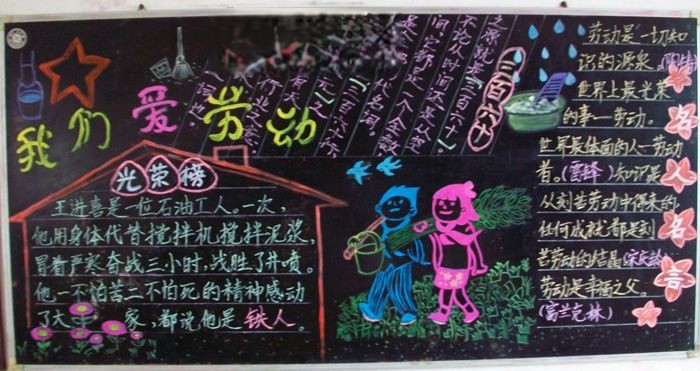 我们爱劳动
光荣榜
王进喜是一位石油工人。一次,
他用身体代替搅拌机搅拌泥浆,
冒着严寒奋战三小时,战胜了井喷。
他一不怕苦二不怕死的精神感动
了大 家,都说他是铁人。
三百六十
之源就是三百六十
不论从时间还是从空
间,它都是一个全数
代名词。
三百六十行
名人名言
劳动是一切知
识的源泉。(陶铸)
世界上最光荣
的事—劳动。
世界最体面的人—劳动
者。(雷锋)知识是
从刻苦劳动中得来的
任何成就都是刻
苦劳动的结晶(宋庆龄)
劳动是幸福之父。
(富兰克林)